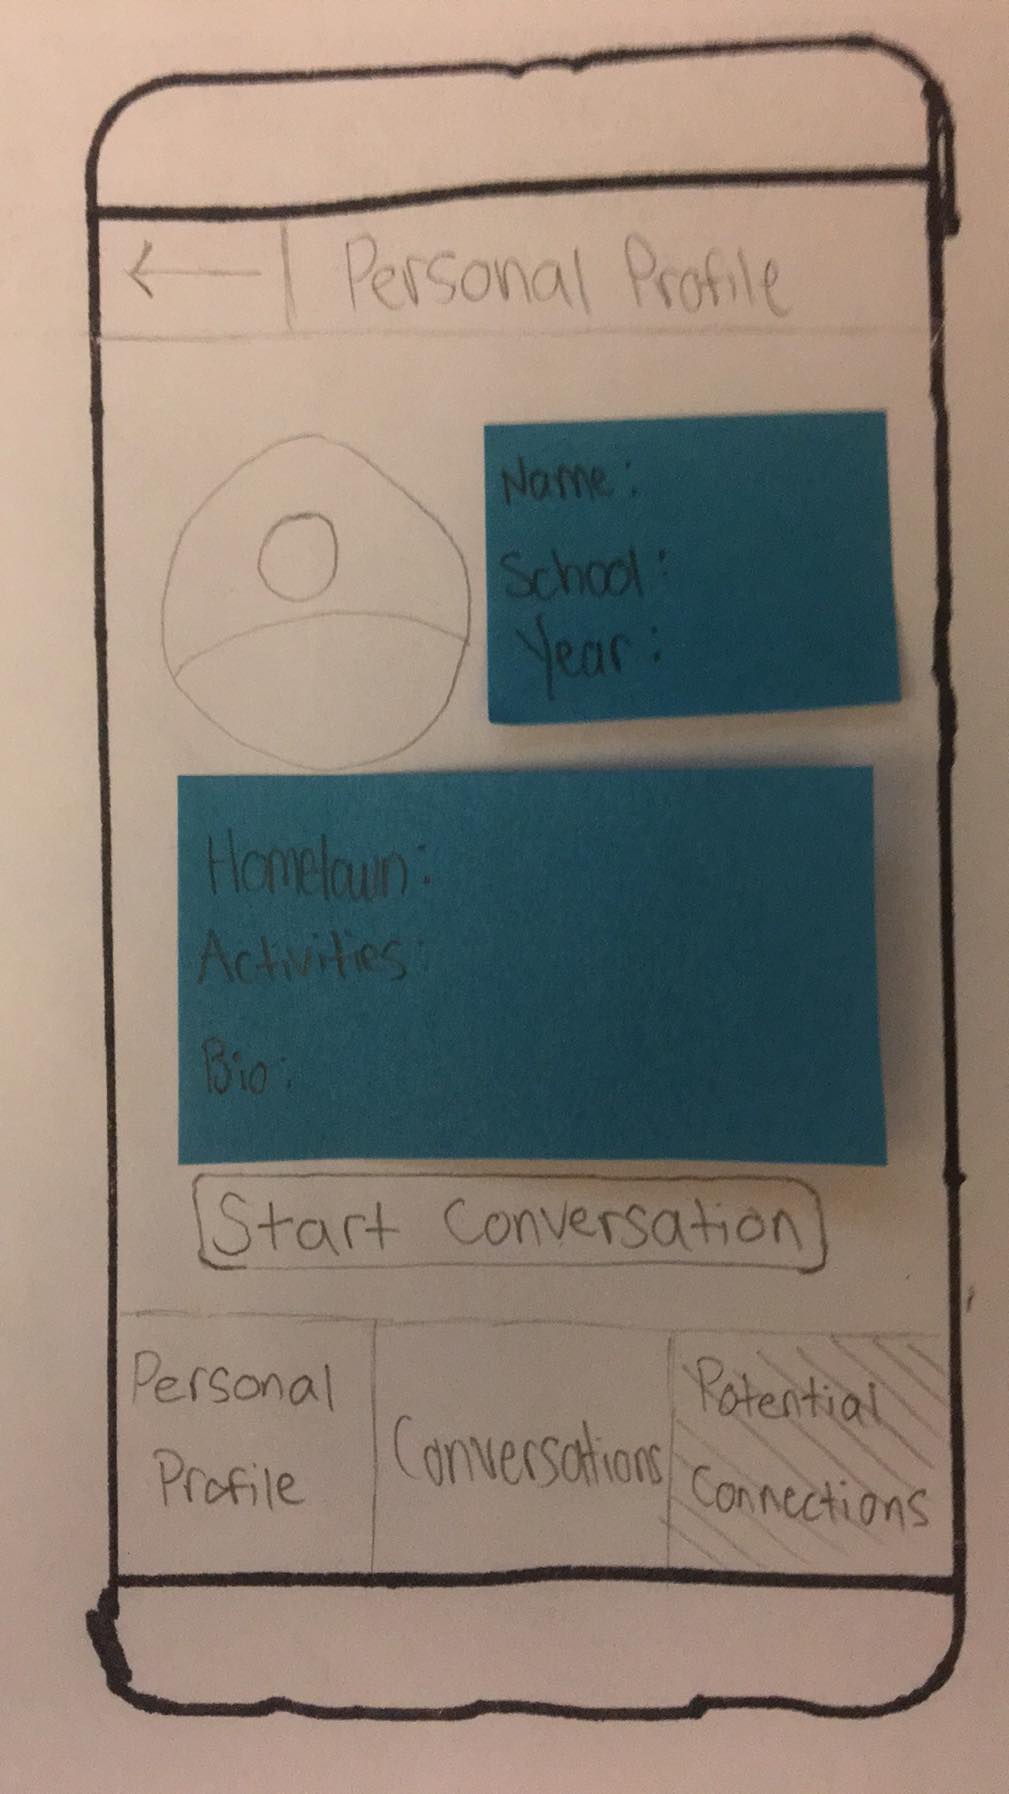 Personal Profile
Name:
School:
Year:
Hometown:
Activities:
Bio:
Start Conversation
Personal
Profile
Conversations
Potential
Connections